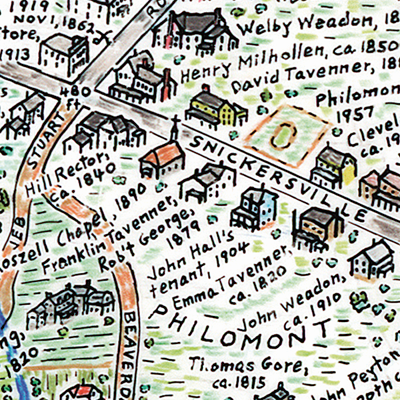 1919
Nov 1, 1862
tore,
1913
RO
Welby Weadon, 18
Henry Milhollen, ca 1850
David Tavenner, 18
Philomon
1957
Cleve
ca. 19
480
ft
STUART
SNICKERSVILLE
Hill Rector,
ca. 1840
oszell Chapel, 1890
Franklin Tavenner,
Rob't George,
1879
John Hall's
tenant, 1904
Emma Tavenner
ca. 1820
John Weadon,
ca. 1910
PHILOMONT
Thomas Gore,
ca. 1815
BEAVERD
ng,
1820
John Peyton